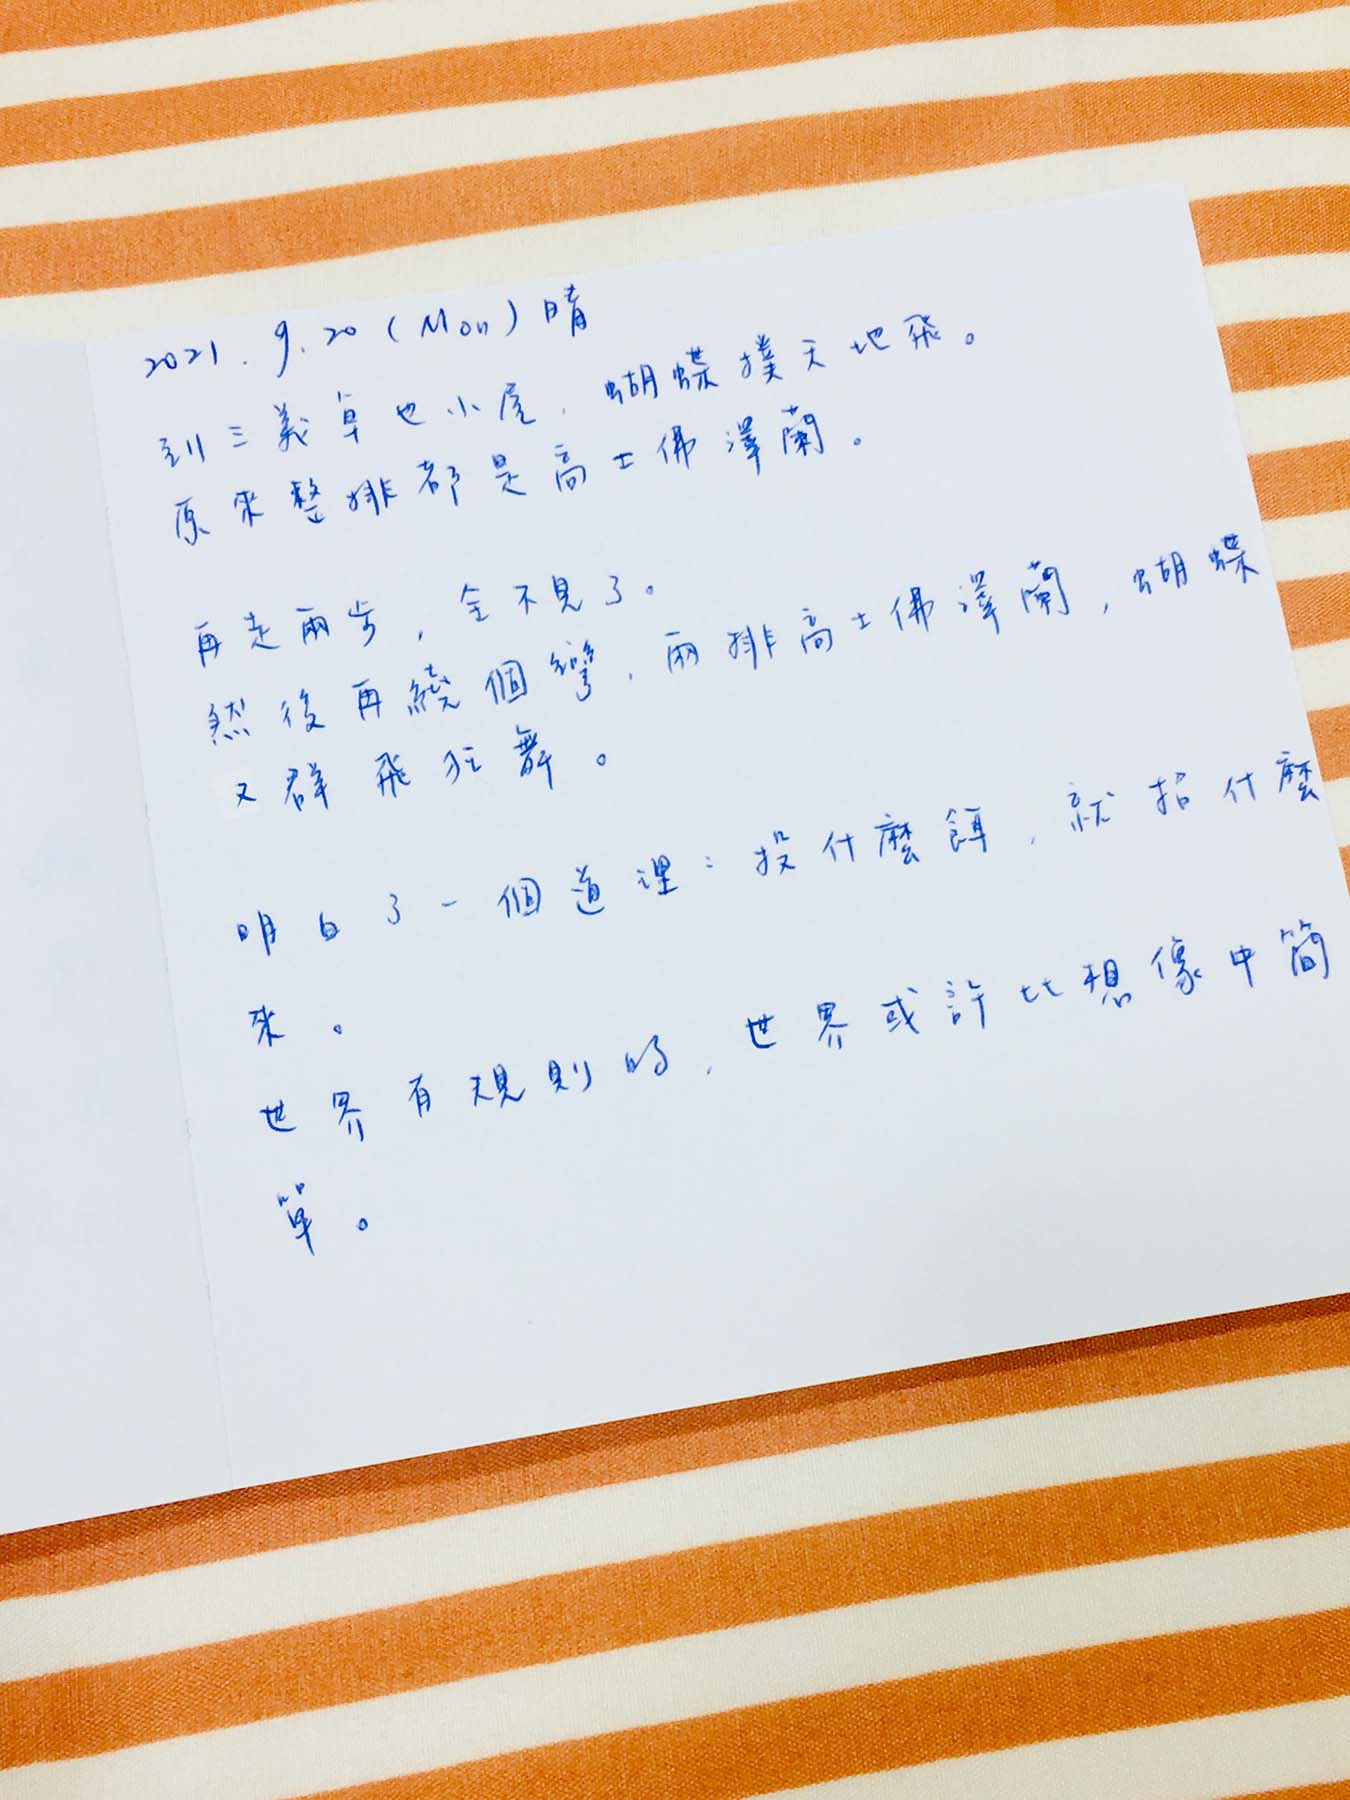 2021.9.20(Mon)晴
到三義卓也小屋,蝴蝶撲天地飛。
原來整排都是高士佛澤蘭。
再走兩步,全不見了。
然後再繞個彎,兩排高士佛澤蘭,蝴蝶
又群飛狂舞。
明白了一個道理:投什麼餌,就招什麼
來。
世界有規則的,世界或許比想像中簡
單。